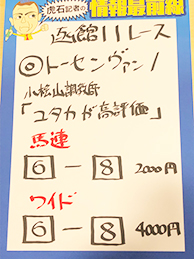 虎石記者の
情報最前線
函館11レース
◎トーセンヴァンノ
小桧山調教師
「ユタカが高評価」
馬連
6-8 2000円
ワイド
6-8 4000円